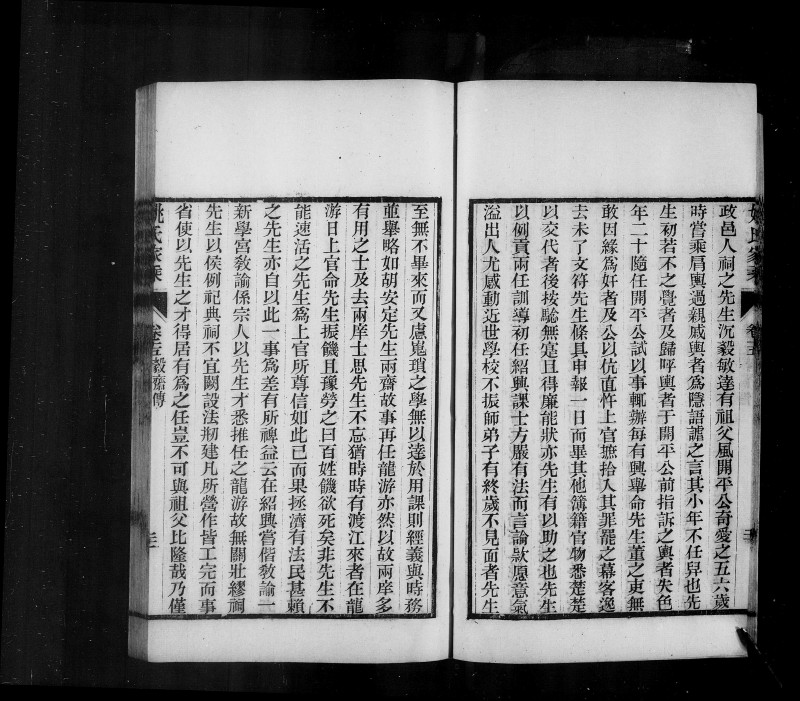 政邑人祠之先生沉毅敏達有祖父風開平公奇愛之五六歲
時嘗乘肩輿過親戚輿者為隱語謔之言其小年不任舁也先
生初若不之覺者及歸呼輿者于開平公前指訴之輿者失色
年二十隨任開平公試以事輒辦每有興舉命先生董之吏無
敢因緣為奸者及公以伉直忤上官摭拾入其罪罷之幕客逸
去未了文符先生條具申報一日而畢其他簿籍官物悉楚楚
以交代者後按驗無寔且得廉能狀亦先生有以助之也先生
以例貢兩任訓導初任紹興課士方嚴有法而言論款愿意氣
溢出人尤感動近世學校不振師弟子有終歲不見面者先生
姚氏家乘
卷十五
至無不畢來而又慮嵬瑣之學無以達於用課則經義與時務
並舉略如胡安定先生兩齋故事再任龍游亦然以故兩庠多
有用之士及去兩庠士思先生不忘猶時時有渡江來者在龍
游日上官命先生振饑且豫勞之曰百姓饑欲死矣非先生不
能速活之先生為上官所尊信如此已而果拯濟有法民甚賴
之先生亦自以此一事為差有所裨益云在紹興嘗偕敎諭一
新學宮敎諭係宗人以先生才悉推任之龍游故無關壯繆祠
先生以俟例祀典祠不宜闕設法刱建凡所營作皆工完而事
省使以先生之才得居有為之任豈不可與祖父比隆哉乃僅
姚氏家乘
卷十五 毅齋傳
三